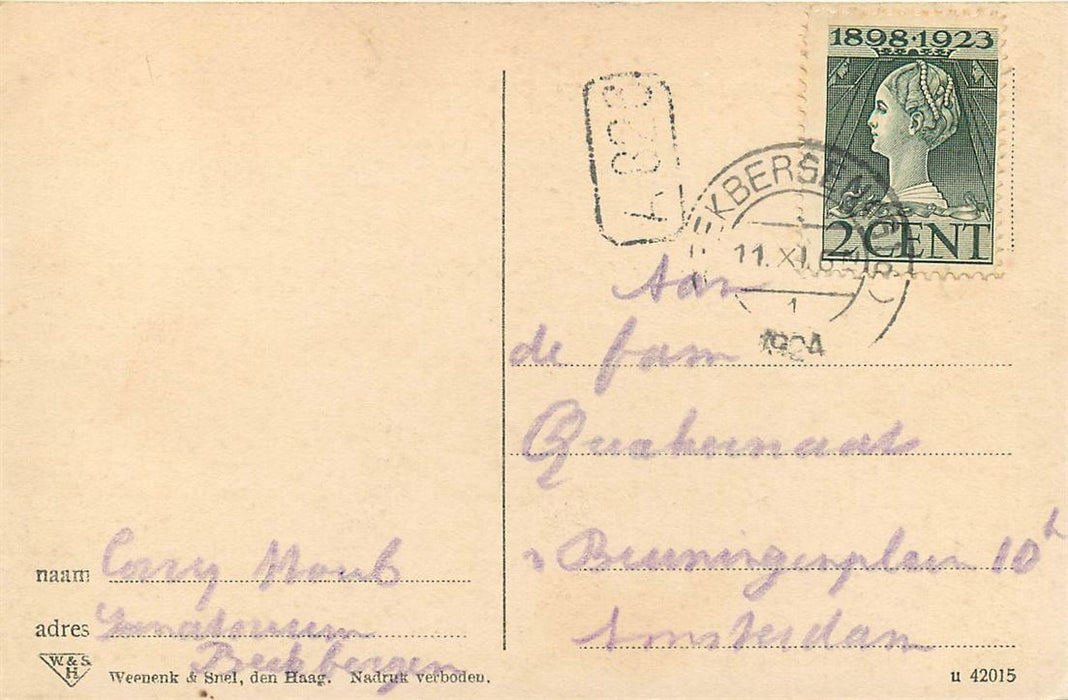 1898·1923
2 CENT
A828
11.XI.
1
1924
Aan
de fam
Quakernaat
Beuningenplein 10 h
Amsterdam
naam Corry
adres Sanatorium
Beekbergen
W. & S.
H
Weenenk & Snel, den Haag. Nadruk verboden.
u 42015